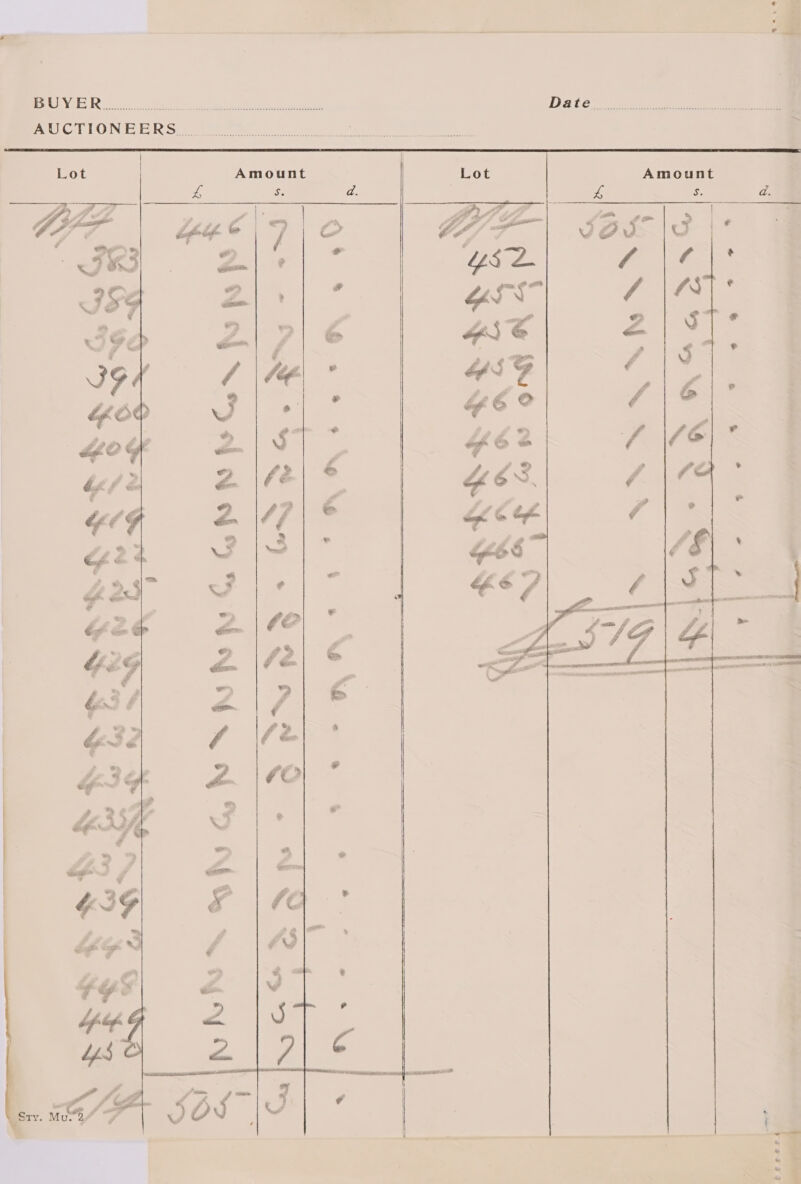 BUYER Date
AUCTIONEERS
Lot Amount Lot Amount
£ s. d. £ s. d.
B/F 446 7 0
383 2 . .
384 2 . .
390 2 7 6
391 1 14 .
400 3 . .
404 2 5 .
412 2 12 6
419 2 17 6
422 3 3 .
425 3 . .
426 2 10 .
429 2 12 6
431 2 7 6
432 1 12 .
434 2 10 .
435/6 3 . .
437 2 2 .
439 8 10 .
443 1 15 .
448 2 5 .
449 2 5 .
450 2 7 6
C/F 505 3 .
Sty. Mu. 2
B/F 505 3 .
452 1 1 .
455 1 15 .
456 2 5 .
459 1 5 .
460 1 6 .
462 1 16 .
463 1 10 .
464 1 . .
465 18 .
467 1 5 .
£519 4 -